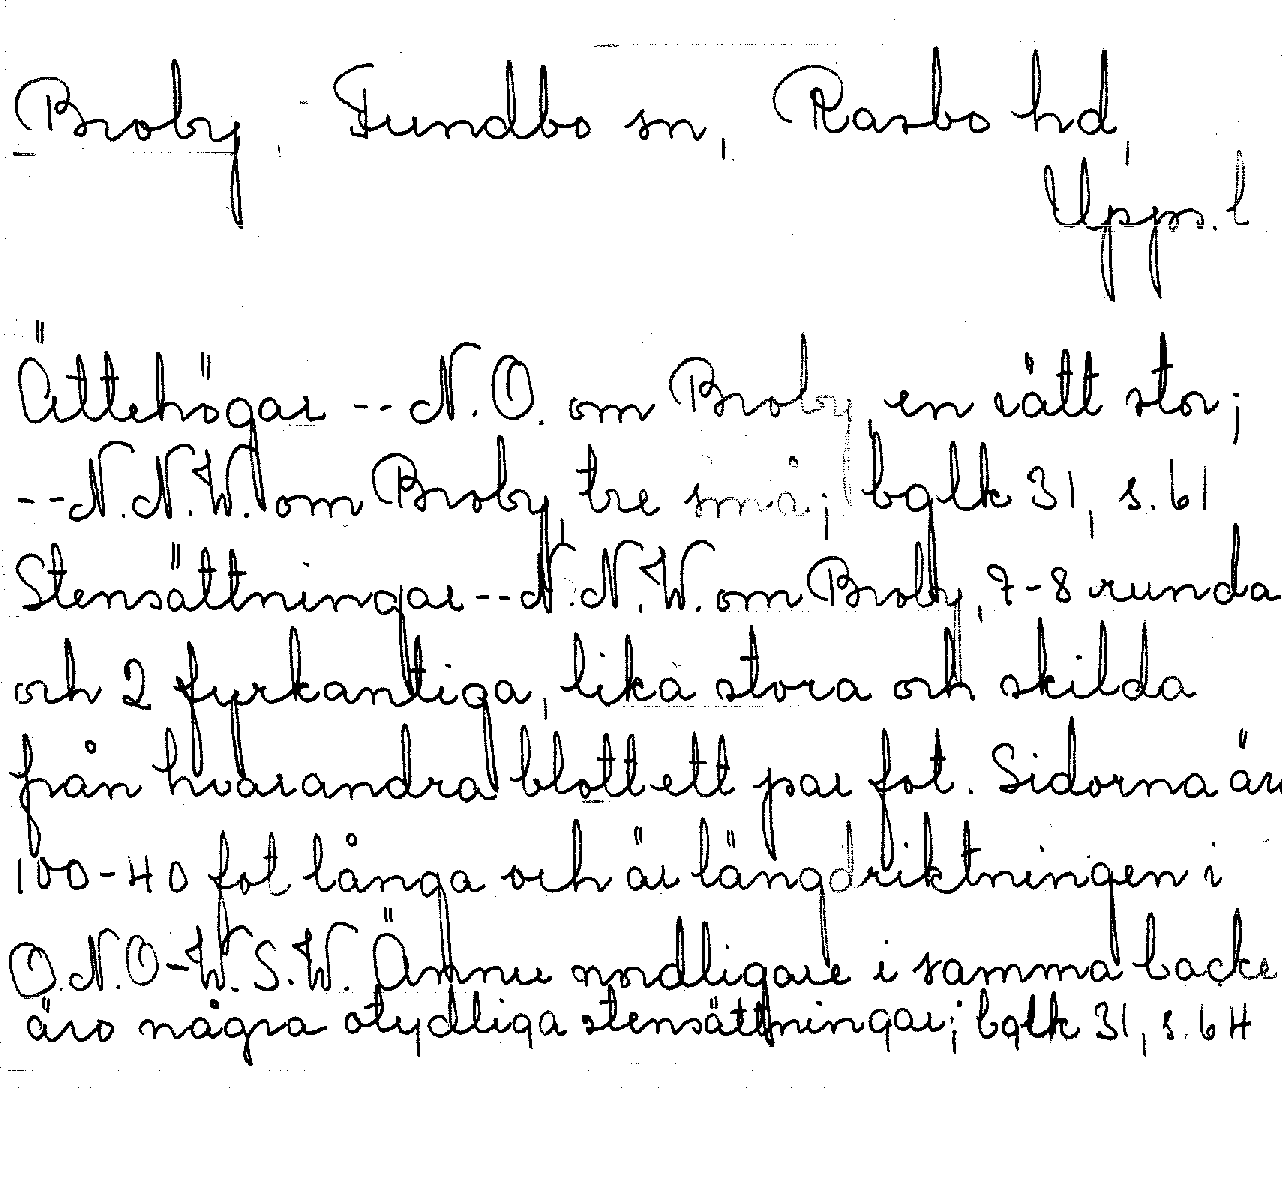 Broby, Fundbo sn, Rasbo hd,
Upps. l
Ättehögar -- N.O. om Broby, en rätt stor;
-- N.N.W. om Broby, tre små; bglk 31, s. 61
Stensättningar -- N.N.W. om Broby, 7-8 runda
och 2 fyrkantiga, lika stora och skilda
från hvarandra blott ett par fot. Sidorna är
100-40 fot långa och är längdriktningen i
O.N.O-W.S.W. Ännu nordligare i samma backe
äro några otydliga stensättningar; bglk 31, s. 64